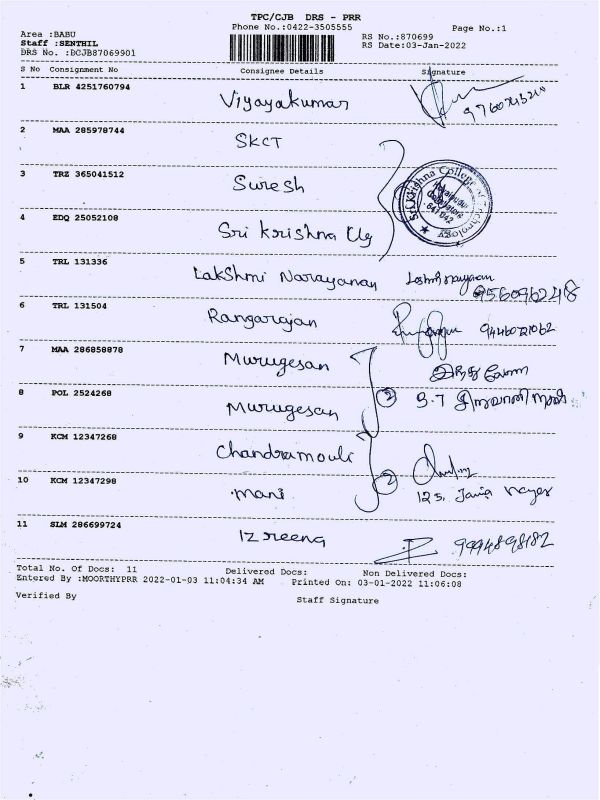 TPC/CJB DRS - PRR
Phone No.:0422-3505555 Page No.:1
Area :BABU RS No.:870699
Staff :SENTHIL RS Date:03-Jan-2022
DRS No. :DCJB87069901
S No Consignment No Consignee Details Signature
1 BLR 4251760794 Viyayakumar
2 MAA 285978744 SKCT
3 TRZ 365041512 Suresh
Sri Krishna College of Technology
Coimbatore
641 042
4 EDQ 25052108 Sri Krishna Clg
5 TRL 131336 Lakshmi Narayanan
9560962248
6 TRL 131504 Rangarajan 9446021062
7 MAA 286858878 Murugesan
8 POL 2524268 Murugesan 2
9 KCM 12347268 Chandramouli
10 KCM 12347298 mani 2 125,
11 SLM 286699724 Izreena 9994898182
Total No. Of Docs: 11 Delivered Docs: Non Delivered Docs:
Entered By :MOORTHYPRR 2022-01-03 11:04:34 AM Printed On: 03-01-2022 11:06:08
Verified By Staff Signature